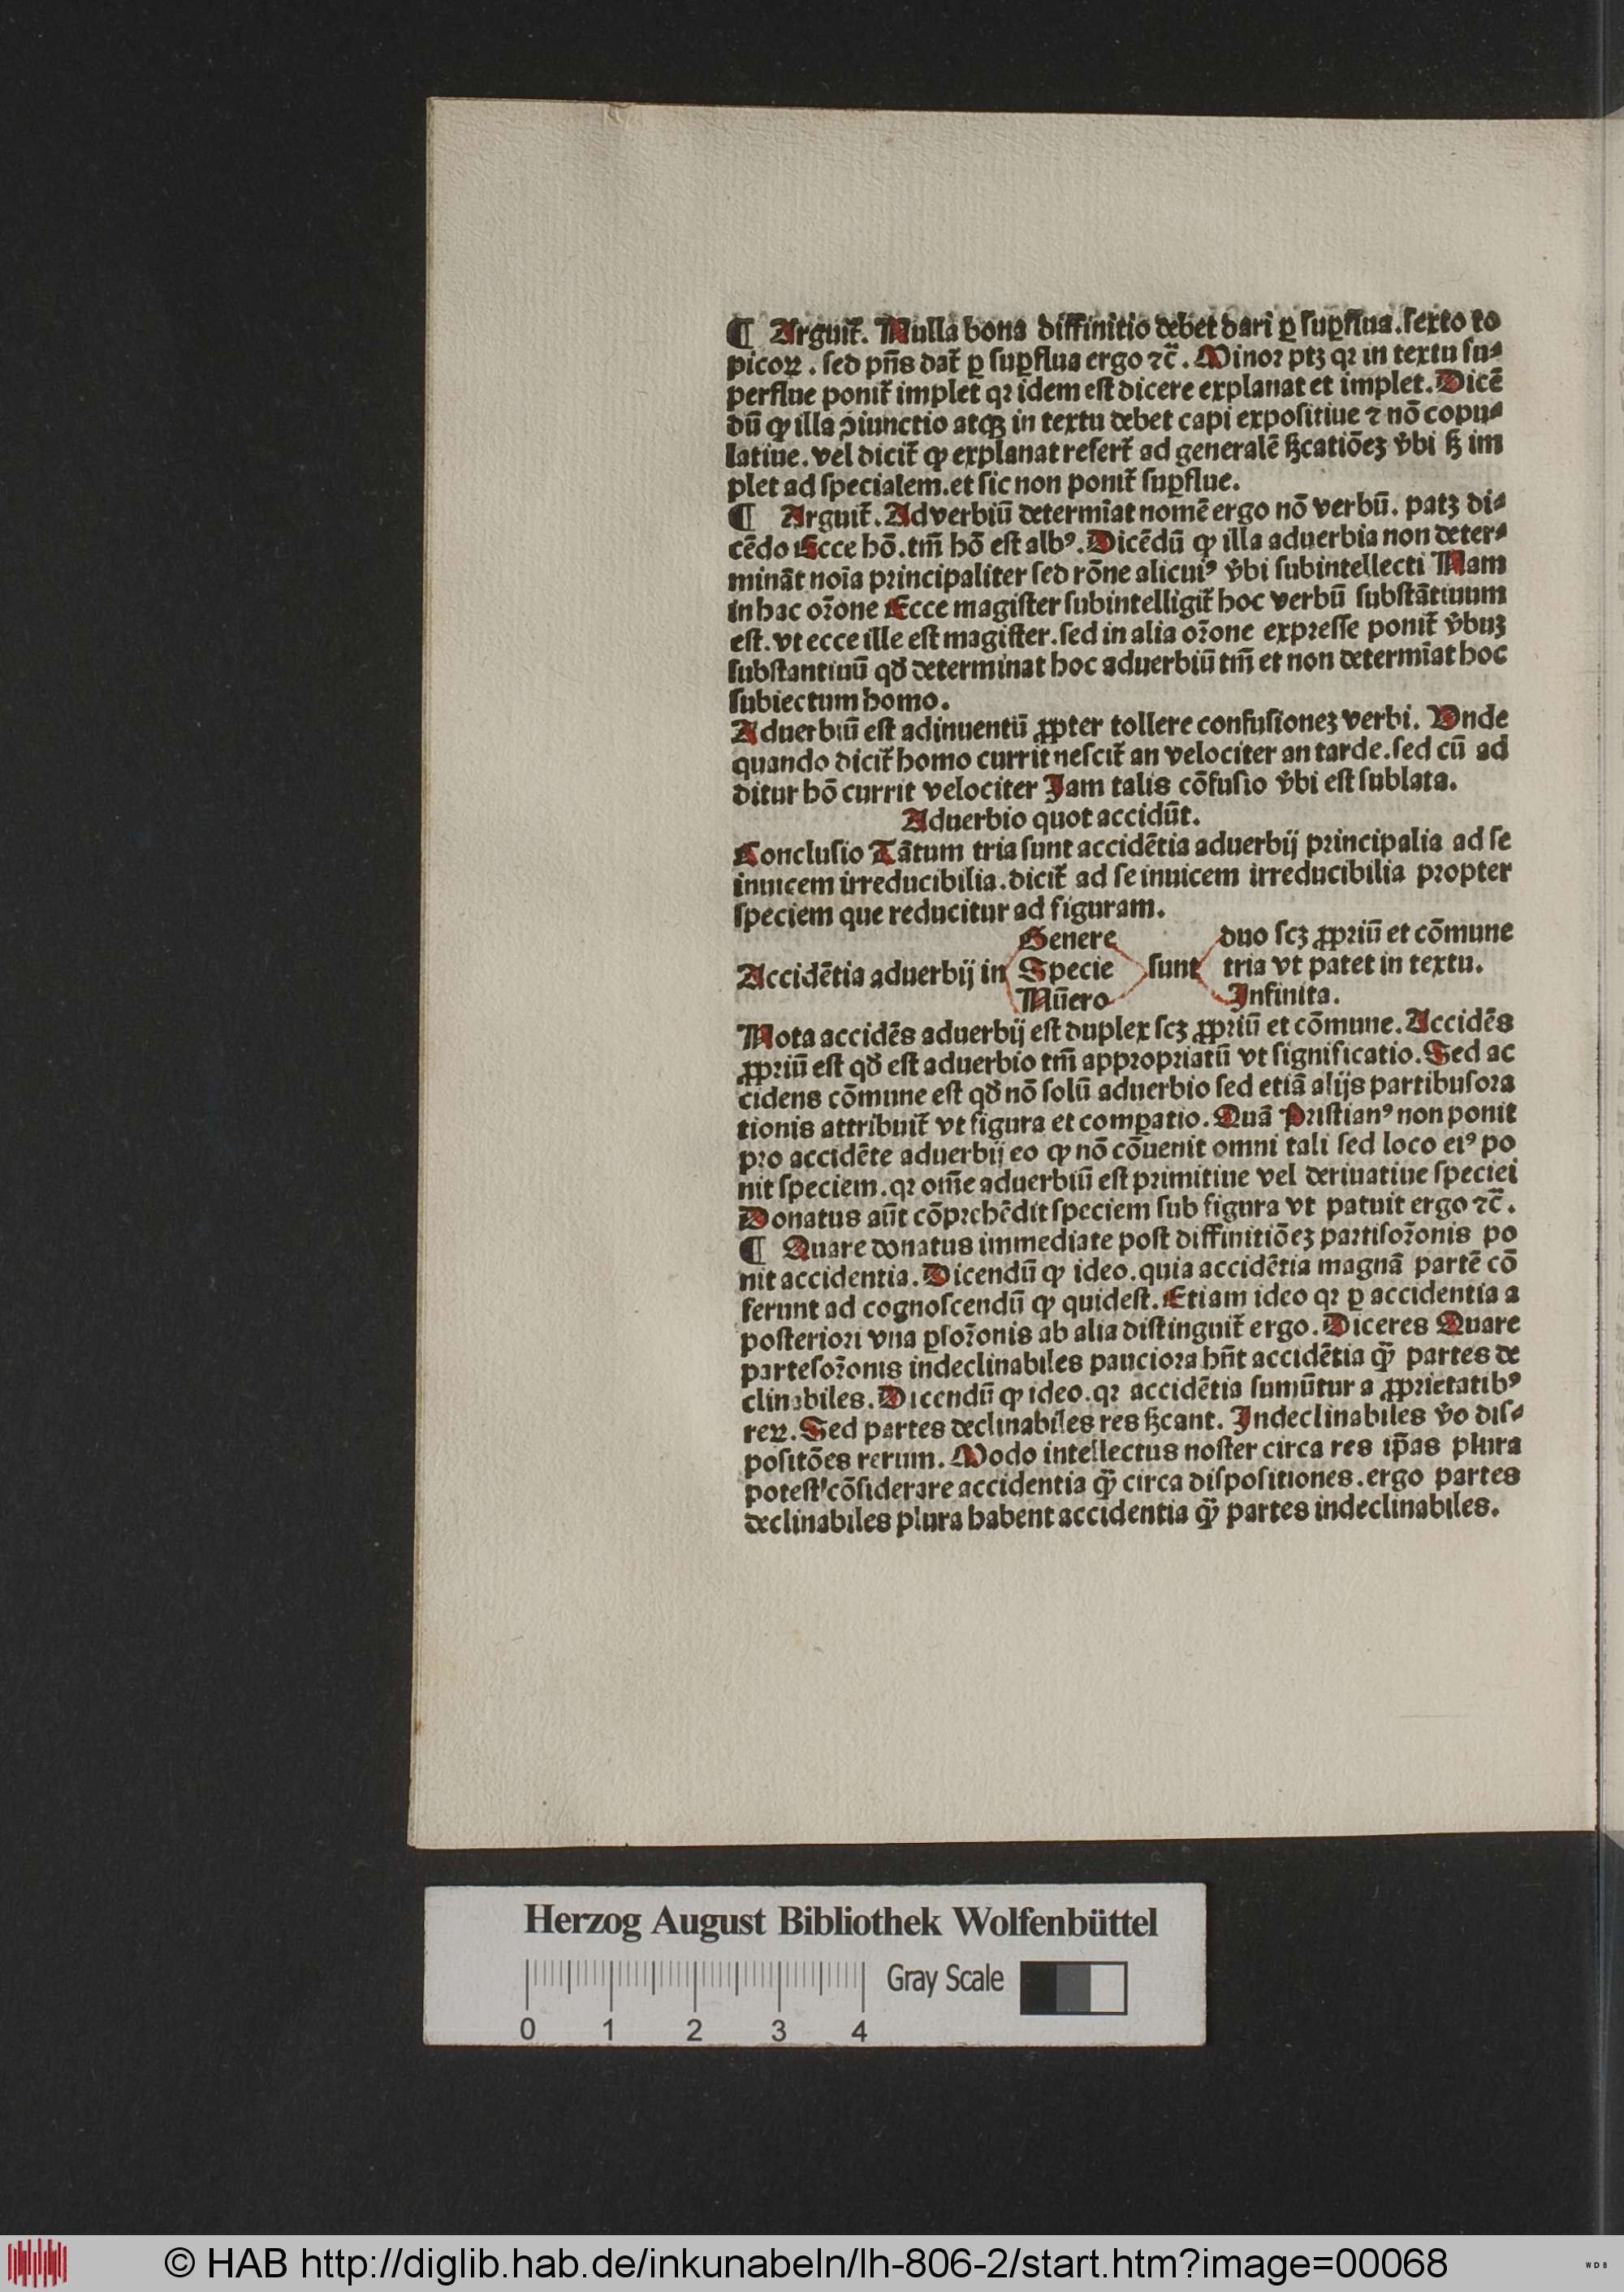 ¶ Arguit᷑. Nulla bona diffinitio debet dari ꝑ suꝑflua.sexto to
picoꝝ. sed pn̄s dat᷑ ꝑ suꝑflua ergo ⁊c̄. Minor ptꝫ qꝛ in textu su⸗
perflue ponit᷑ implet qꝛ idem est dicere explanat et implet. Dicē
dū ꝙ illa ↄiunctio atqꝫ in textu debet capi expositiue ⁊ nō copu⸗
latiue. vel dicit᷑ ꝙ explanat refert᷑ ad generalē ßcatiōeꝫ v̄bi ß im
plet ad specialem.et sic non ponit᷑ suꝑflue.
¶ Arguit᷑. Adverbiū determīat nomē ergo nō verbū. patꝫ di⸗
cēdo Ecce hō.tm̄ hō est albꝰ. Dicēdū ꝙ illa aduerbia non deter⸗
mināt noīa principaliter sed rōne alicuiꝰ v̄bi subintellecti Nam
in hac or̄one Ecce magister subintelligit᷑ hoc verbū substātiuum
est. vt ecce ille est magister.sed in alia or̄one expresse ponit᷑ v̄buꝫ
substantiuū qd̄ determinat hoc aduerbiū tm̄ et non determīat hoc
subiectum homo.
Aduerbiū est adinuentū ꝓpter tollere confusioneꝫ verbi. Unde
quando dicit᷑ homo currit nescit᷑ an velociter an tarde.sed cū ad
ditur hō currit velociter Jam talis cōfusio v̄bi est sublata.
Aduerbio quot accidūt.
Conclusio Tātum tria sunt accidētia aduerbij principalia ad se
inuicem irreducibilia.dicit᷑ ad se inuicem irreducibilia propter
speciem que reducitur ad figuram.
Genere duo scꝫ ꝓpriū et cōmune
Accidētia aduerbij in Specie sunt tria vt patet in textu.
Nūero Infinita.
Nota accidēs aduerbij est duplex scꝫ ꝓpriū et cōmune. Accidēs
ꝓpriū est qd̄ est aduerbio tm̄ appropriatū vt significatio. Sed ac
cidens cōmune est qd̄ nō solū aduerbio sed etiā alijs partibusora
tionis attribuit᷑ vt figura et comꝑatio. Quā Pristianꝰ non ponit
pro accidēte aduerbij eo ꝙ nō cōuenit omni tali sed loco eiꝰ po
nit speciem.qꝛ om̄e aduerbiū est primitiue vel deriuatiue speciei
Donatus aūt cōprehēdit speciem sub figura vt patuit ergo ⁊c̄.
¶ Quare donatus immediate post diffinitiōeꝫ partisor̄onis po
nit accidentia. Dicendū ꝙ ideo.quia accidētia magnā partē cō
ferunt ad cognoscendū ꝙ quidest. Etiam ideo qꝛ ꝑ accidentia a
posteriori vna ꝑsor̄onis ab alia distinguit᷑ ergo. Diceres Quare
partesor̄onis indeclinabiles pauciora hn̄t accidētia qͣ̄ partes de
clinabiles. Dicendū ꝙ ideo.qꝛ accidētia sumūtur a ꝓprietatibꝰ
reꝝ. Sed partes declinabiles res ßcant. Indeclinabiles v̄o dis⸗
positōes rerum. Modo intellectus noster circa res ip̄as plura
potest cōsiderare accidentia qͣ̄ circa dispositiones.ergo partes
declinabiles plura habent accidentia qͣ̄ partes indeclinabiles.
Herzog August Bibliothek Wolfenbüttel
Gray Scale
0 1 2 3 4
© HAB http://diglib.hab.de/inkunabeln/lh-806-2/start.htm?image=00068
WDB